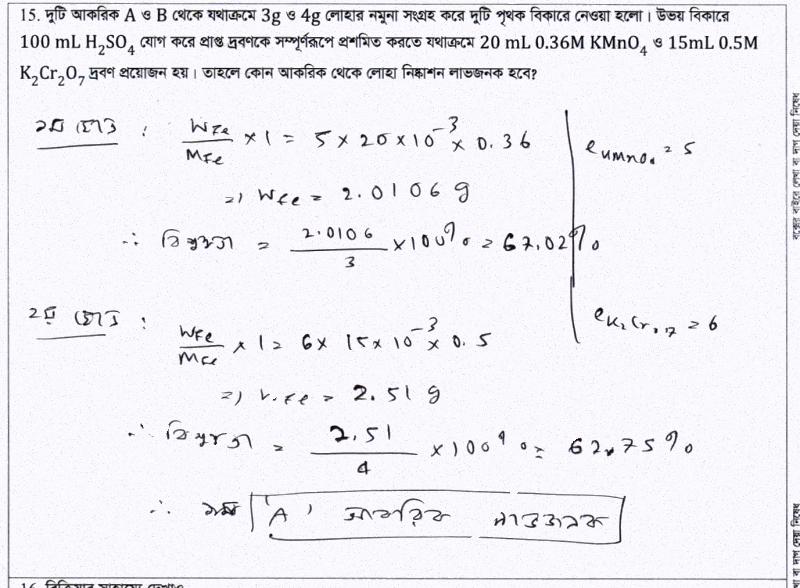 15. দুটি আকরিক A ও B থেকে যথাক্রমে 3g ও 4g লোহার নমুনা সংগ্রহ করে দুটি পৃথক বিকারে নেওয়া হলো। উভয় বিকারে
100 mL H₂SO₄ যোগ করে প্রাপ্ত দ্রবণকে সম্পূর্ণরূপে প্রশমিত করতে যথাক্রমে 20 mL 0.36M KMnO₄ ও 15mL 0.5M
K₂Cr₂O₇ দ্রবণ প্রয়োজন হয়। তাহলে কোন আকরিক থেকে লোহা নিষ্কাশন লাভজনক হবে?
১ম ক্ষেত্রে : W_Fe/M_Fe × 1 = 5 × 20 × 10⁻³ × 0.36
e_KMnO₄ = 5
=) W_Fe = 2.0106 g
∴ বিশুদ্ধতা = 2.0106/3 × 100% = 67.02%
২য় ক্ষেত্রে : W_Fe/M_Fe × 1 = 6 × 15 × 10⁻³ × 0.5
e_K₂Cr₂O₇ = 6
=) W_Fe = 2.51 g
∴ বিশুদ্ধতা = 2.51/4 × 100% = 62.75%
∴ 'A' আকরিক লাভজনক
বক্সের বাইরে লেখা বা দাগ দেয়া নিষেধ
বা দাগ দেয়া নিষেধ